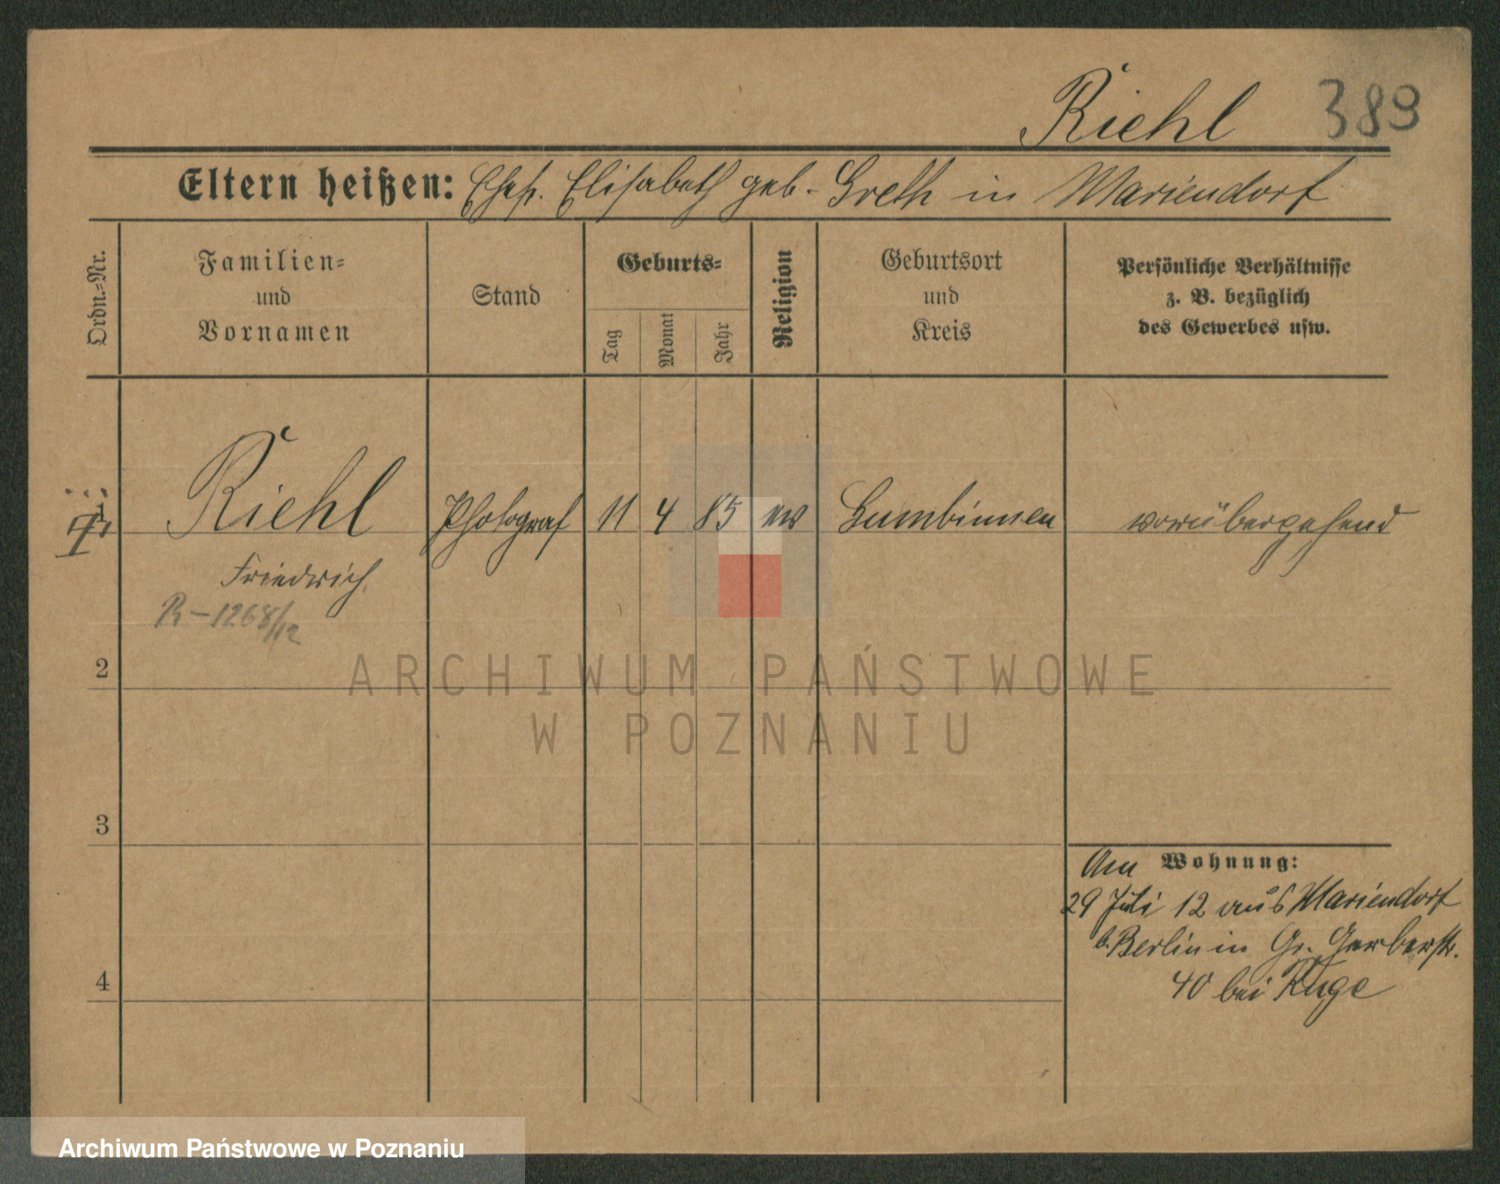 Riehl 389
Eltern heißen: Ehefr. Elisabeth geb. Greth in Mariendorf
Ordn.-Nr.
Familien-
und
Vornamen
Stand
Geburts-
Tag
Monat
Jahr
Religion
Geburtsort
und
Kreis
Persönliche Verhältnisse
z. B. bezüglich
des Gewerbes usw.
1 Riehl Photograf 11 4 85 ev Gumbinnen vorübergehend
Friedrich
R-1268/12
2
ARCHIWUM PAŃSTWOWE
W POZNANIU
3
Am Wohnung:
29 Juli 12 aus Mariendorf
b. Berlin in Gr. Gerberstr.
4
40 bei Ruge
Archiwum Państwowe w Poznaniu